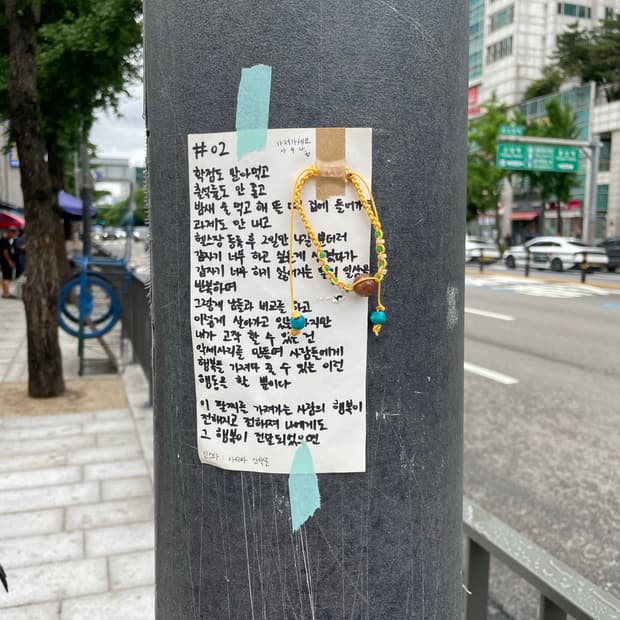 #02
가져가세요
학점도 말아먹고
출석률도 안 좋고
밤새 술 먹고 해 뜰 때 집에 들어가고
과제도 안 내고
헬스장 등록 후 2일만 나갈
갑자기 너무 하고
갑자기 너무 하기 싫어지는 일상을
반복하며
그렇게 남들과 비교를 하고
이렇게 살아가고 있는 지만
내가 고작 할 수 있는 건
악세사리를 만들며 사람들에게
행복을 가져다 줄 수 있는 이런
행동을 한 뿐이다
이 팔찌를 가져가는 사람의 행복이
전해지고 전해져 나에게도
그 행복이 전달되었으면